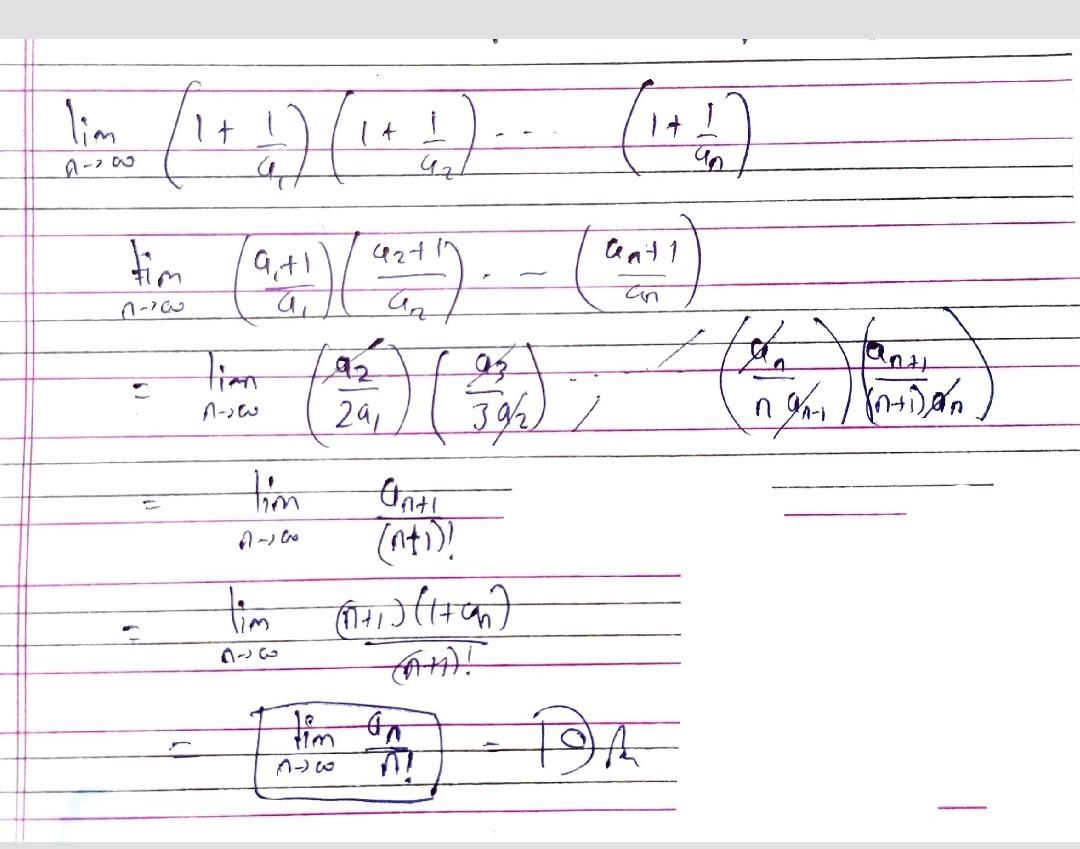 lim n→∞ (1 + 1/a₁) (1 + 1/a₂) - - - (1 + 1/aₙ)
lim n→∞ ((a₁+1)/a₁) ((a₂+1)/a₂) . - - ((aₙ+1)/aₙ)
= lim n→∞ (a₂/2a₁) (a₃/3a₂) . . . (aₙ/n aₙ₋₁) (aₙ₊₁/(n+1)aₙ)
= lim n→∞ aₙ₊₁/(n+1)!
= lim n→∞ (n+1)(1+aₙ)/(n+1)!
= lim n→∞ aₙ/n! =